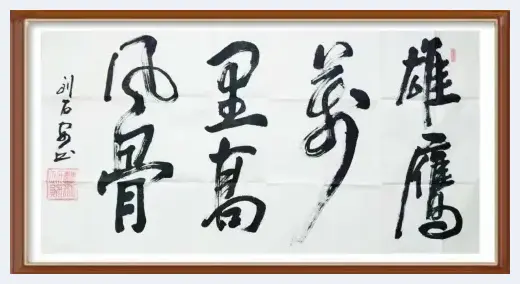 雄鹰
萬
里高
风骨
刘石安书